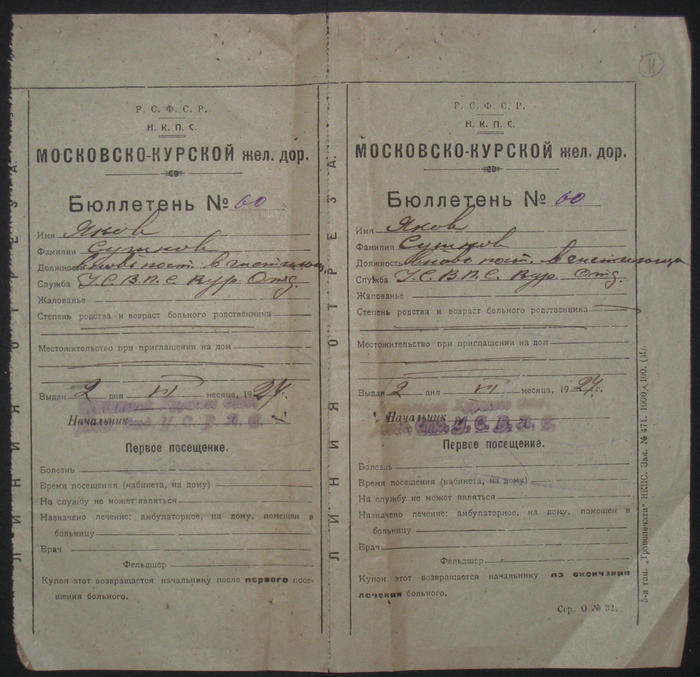 Р. С. Ф. С. Р.
Н. К. П. С.
МОСКОВСКО-КУРСКОЙ жел. дор.
Бюллетень № 60
Имя Яков
Фамилия Сутяков
Должность вновь пост. в чистильщ.
Служба У.С.В.П.С. Кур. Отд.
Жалованье
Степень родства и возраст больного родственника
Местожительство при приглашении на дом
Выдан 2 дня VI месяца, 1927 г.
Начальник У. С. В. П. С.
Первое посещение.
Болезнь
Время посещения (кабинета, на дому)
На службу не может явиться
Назначено лечение: амбулаторное, на дому, помещен в
больницу
Врач
Фельдшер
Купон этот возвращается начальнику после первого посе-
щения больного.
ЛИНИЯ ОТРЕЗА.
11
Р. С. Ф. С. Р.
Н. К. П. С.
МОСКОВСКО-КУРСКОЙ жел. дор.
Бюллетень № 60
Имя Яков
Фамилия Сутяков
Должность вновь пост. в чистильщ
Служба У.С.В.П.С. Кур. Отд.
Жалованье
Степень родства и возраст больного родственника
Местожительство при приглашении на дом
Выдан 2 дня VI месяца, 1927 г.
Начальник У. С. В. П. С.
Первое посещение.
Болезнь
Время посещения (кабинета, на дому)
На службу не может явиться
Назначено лечение: амбулаторное, на дому, помещен в
больницу
Врач
Фельдшер
Купон этот возвращается начальнику по окончании
лечения больного.
Сер. О № 32.
ЛИНИЯ ОТРЕЗА.
5-я тип. „Транспечати" НКПС. Зак. № 471. 1000 д. 100.